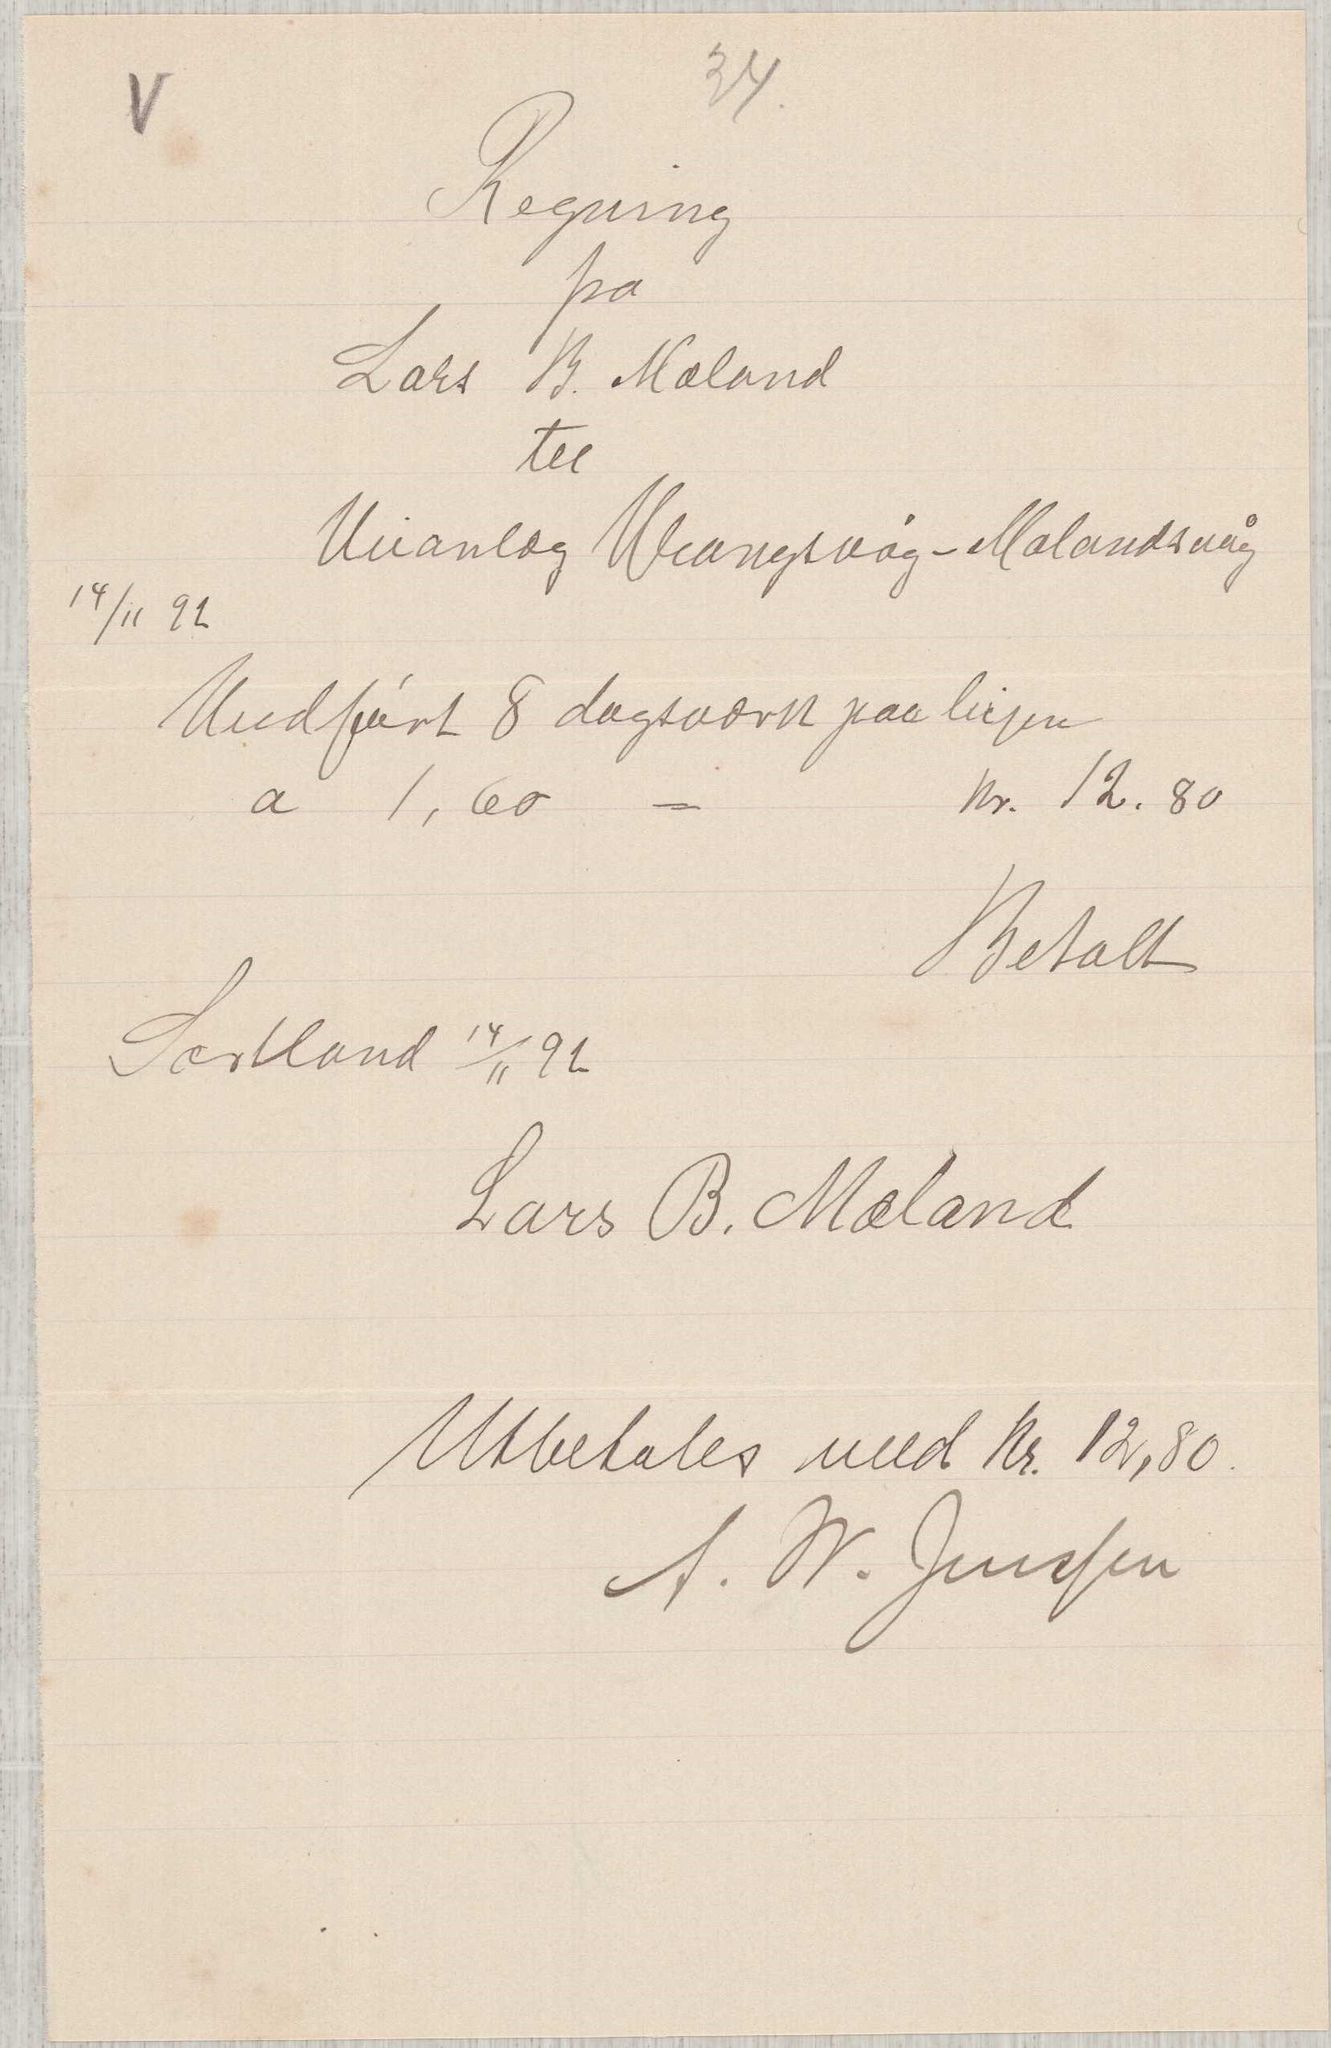 V
34.
Regning
fra
Lars B. Mæland
till
Veianlæg Urangsvåg - Mælandsvåg
14/11 92
Uudført 8 dagsværk paa linjen
a 1,60 = Kr. 12.80
Betalt
Sortland 14/11 92
Lars B. Mæland
Utbetales med Kr. 12,80.
A. W. Jenssen